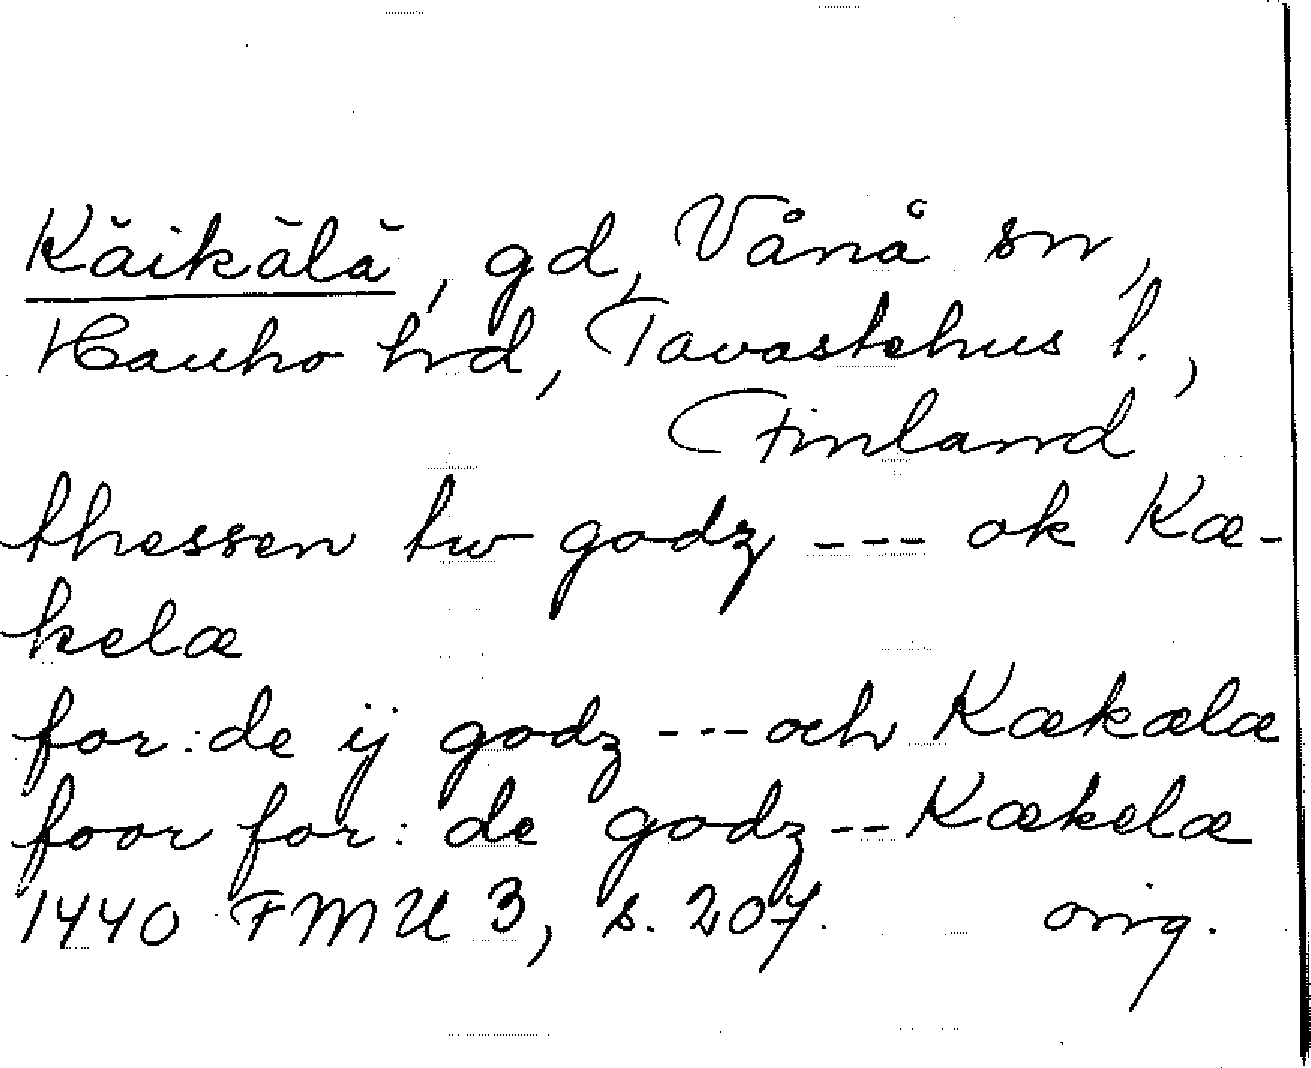 Käikälä, gd, Vånå sn,
Hauho hd, Tavastehus l.,
Finland
thessen tw godz --- ok Kæ-
kelæ
for:de ij godz --- och Kækælæ
foor for: de godz -- Kækelæ
1440 FMU 3, s. 207. orig.